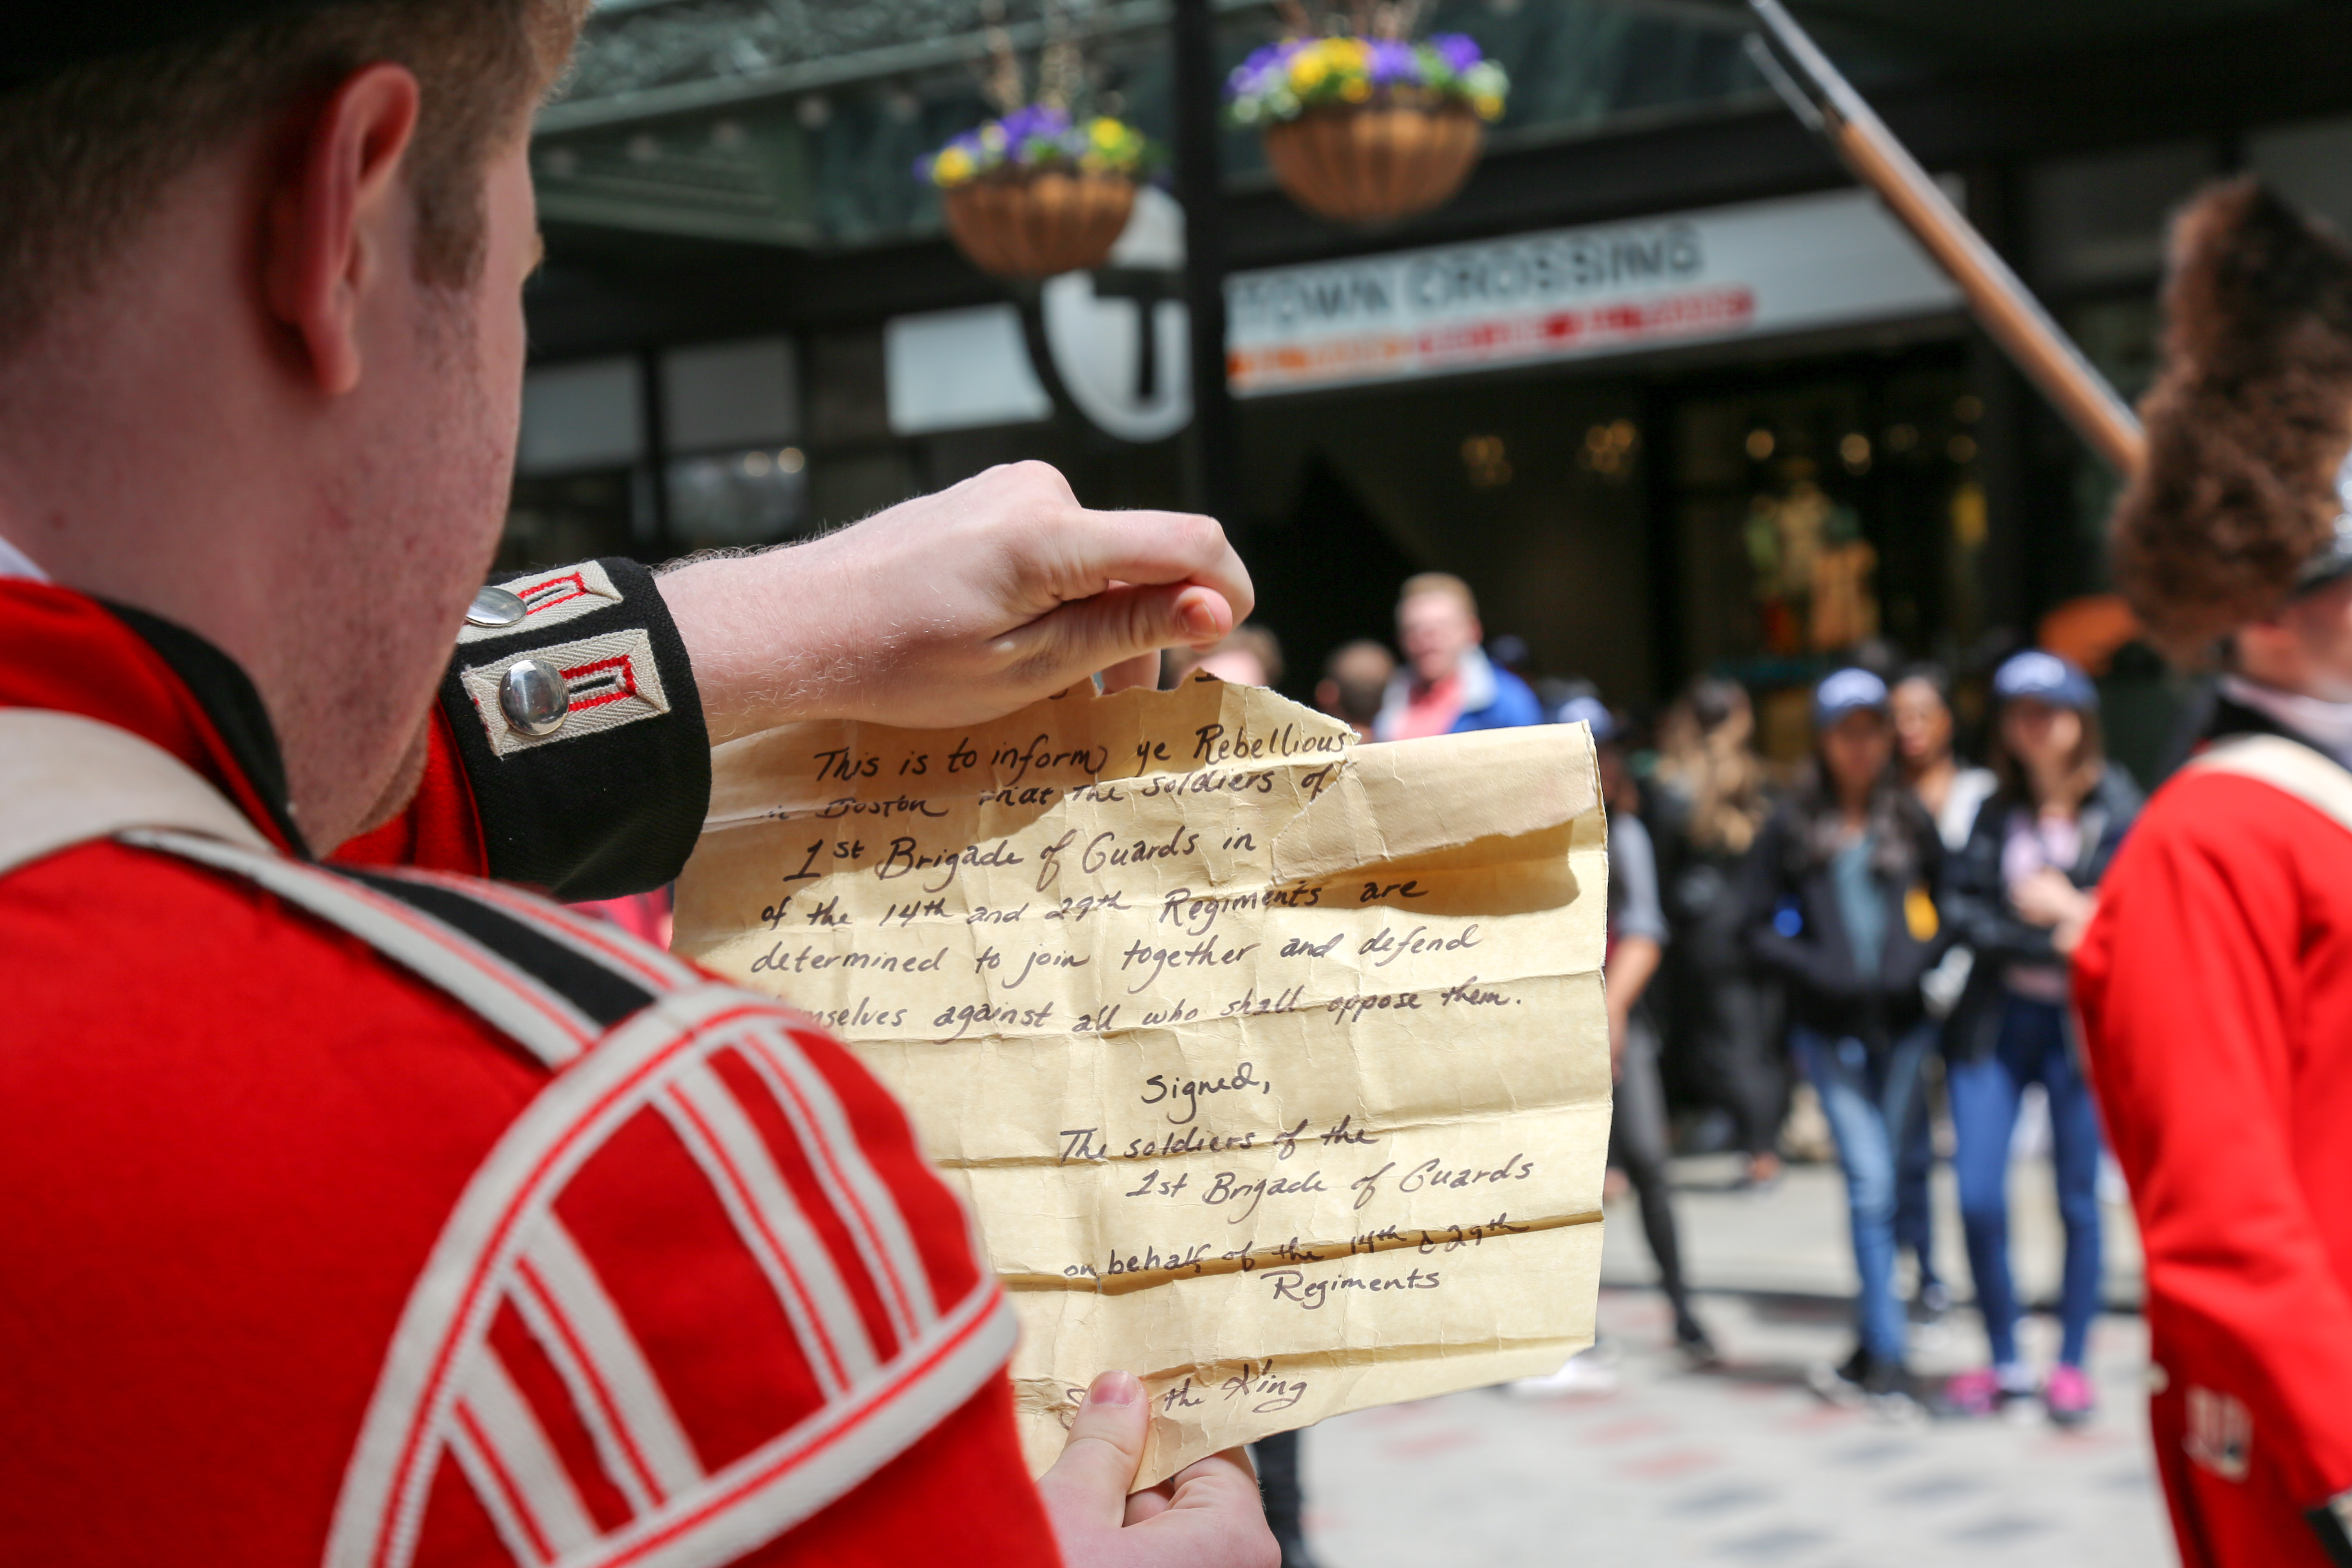 TOWN CROSSING
T
This is to inform ye Rebellious
in Boston that the soldiers of
1st Brigade of Guards in
of the 14th and 29th Regiments are
determined to join together and defend
mselves against all who shall oppose them.
Signed,
The soldiers of the
1st Brigade of Guards
on behalf of the 14th & 29th
Regiments
the King